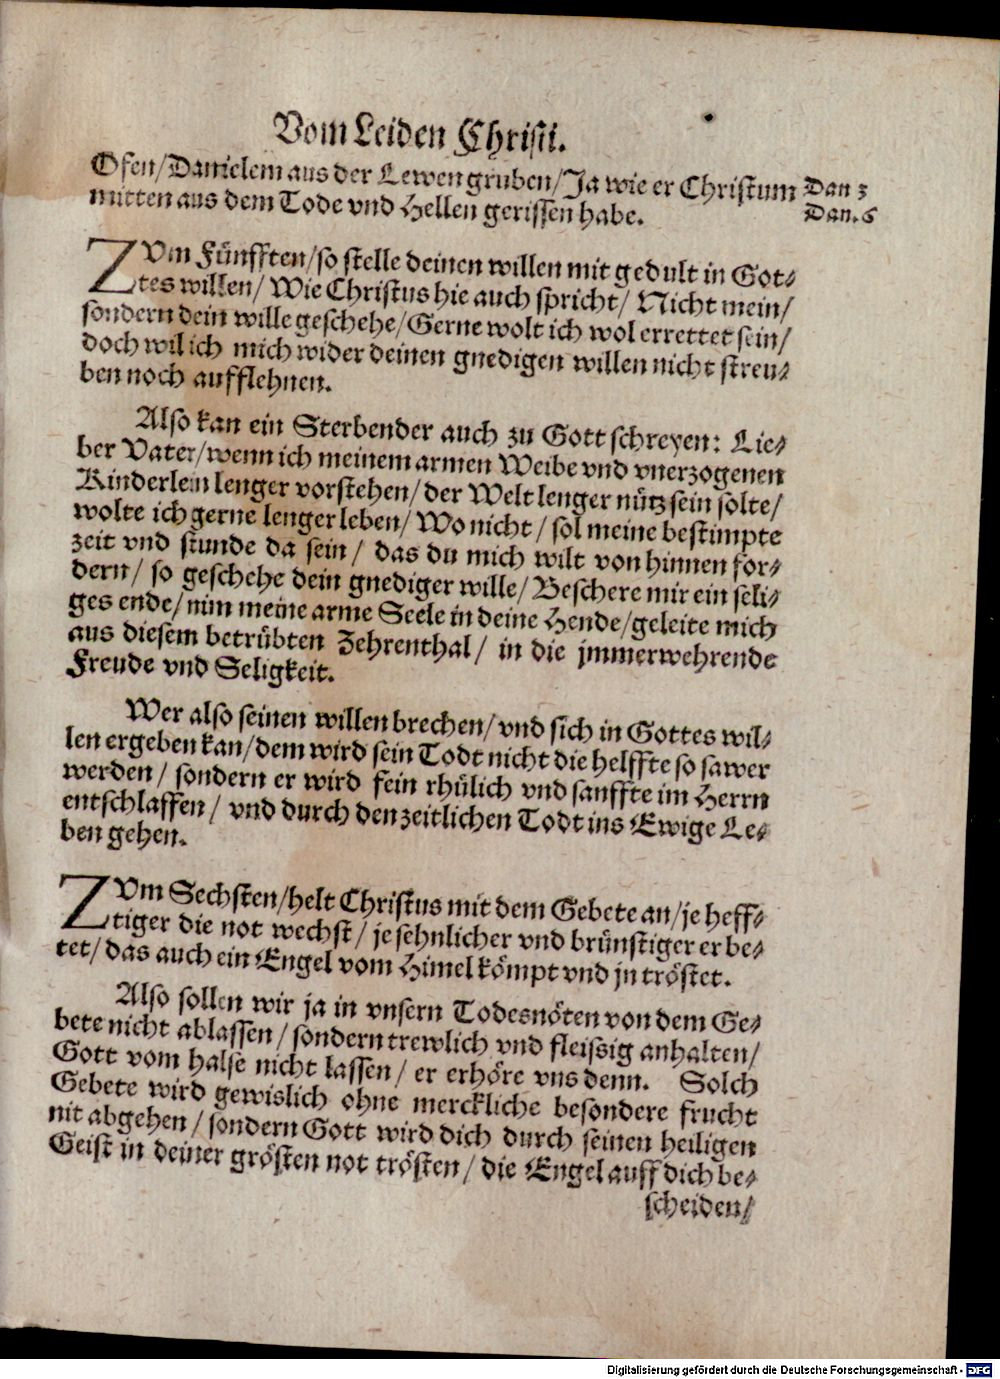 Vom Leiden Christi.
Ofen/Danielem aus der Lewengruben/Ja wie er Christum
Dan 3
mitten aus dem Tode vnd Hellen gerissen habe.
Dan. 6
ZVm Fünfften/so stelle deinen willen mit gedult in Got-
tes willen/ Wie Christus hie auch spricht/ Nicht mein/
sondern dein wille geschehe/Gerne wolt ich wol errettet sein/
doch wil ich mich wider deinen gnedigen willen nicht streu-
ben noch aufflehnen.
Also kan ein Sterbender auch zu Gott schreyen: Lie-
ber Vater/wenn ich meinem armen Weibe vnd vnerzogenen
Kinderlein lenger vorstehen/der Welt lenger nütz sein solte/
wolte ich gerne lenger leben/ Wo nicht/ sol meine bestimpte
zeit vnd stunde da sein/ das du mich wilt von hinnen for-
dern/ so geschehe dein gnediger wille/ Beschere mir ein seli-
ges ende/nim meine arme Seele in deine Hende/geleite mich
aus diesem betrübten Zehrenthal/ in die jmmerwehrende
Freude vnd Seligkeit.
Wer also seinen willen brechen/vnd sich in Gottes wil-
len ergeben kan/dem wird sein Todt nicht die helffte so sawer
werden/ sondern er wird fein rhülich vnd sanffte im Herrn
entschlaffen/ vnd durch den zeitlichen Todt ins Ewige Le-
ben gehen.
ZVm Sechsten/helt Christus mit dem Gebete an/je heff-
tiger die not wechst/je sehnlicher vnd brünstiger er be-
tet/das auch ein Engel vom Himel kömpt vnd jn tröstet.
Also sollen wir ja in vnsern Todesnöten von dem Ge-
bete nicht ablassen/sondern trewlich vnd fleissig anhalten/
Gott vom halse nicht lassen/ er erhöre vns denn. Solch
Gebete wird gewislich ohne merckliche besondere frucht
nit abgehen/sondern Gott wird dich durch seinen heiligen
Geist in deiner grösten not trösten/ die Engel auff dich be-
scheiden/
Digitalisierung gefördert durch die Deutsche Forschungsgemeinschaft - DFG